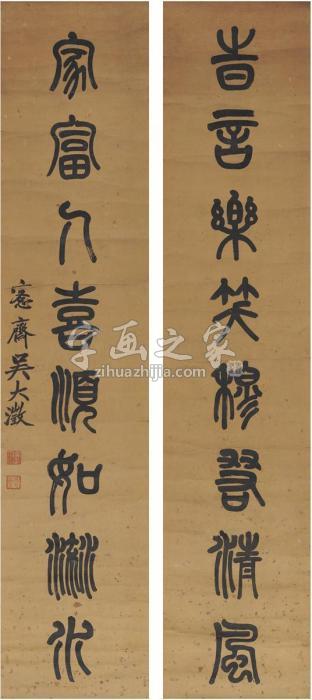 旹言樂笑穆若清風
家富人喜順如流水
愙齋吳大澂
字画之家
zihuazhijia.com